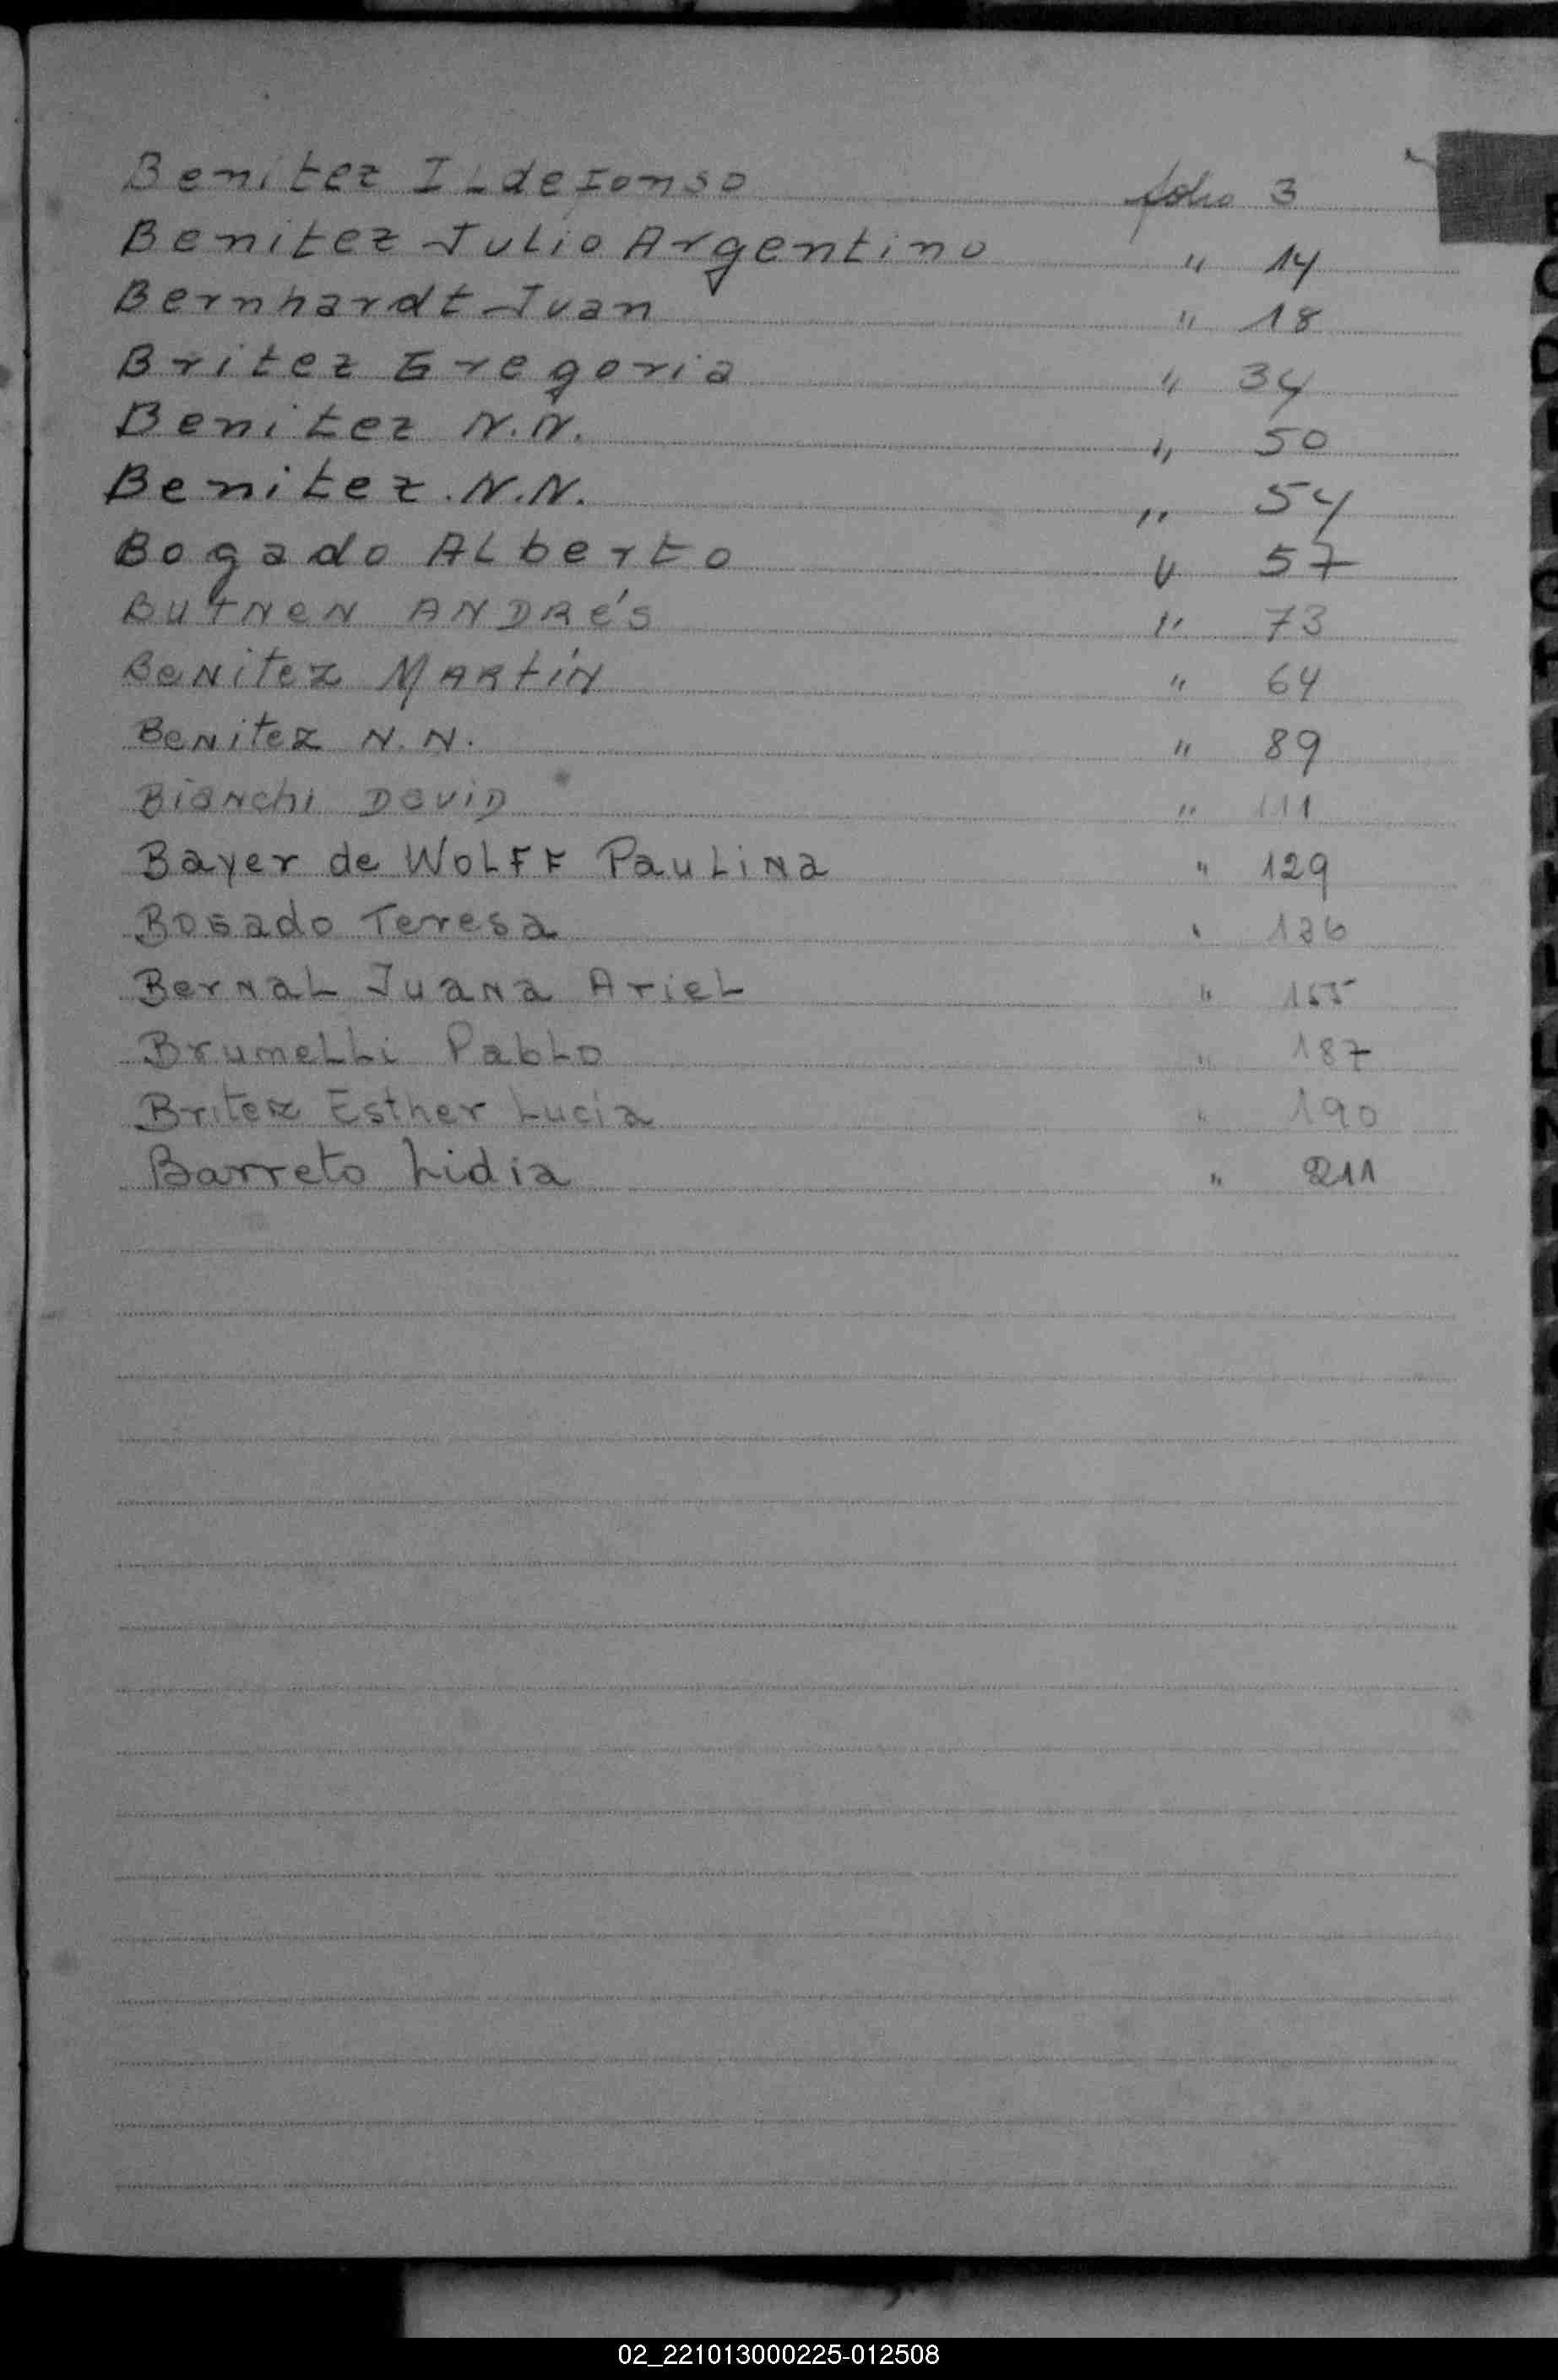 Benitez ILdeFonso folio 3
Benitez Julio Argentino " 14
Bernhardt Juan " 18
Britez Gregoria " 34
Benitez N.N. " 50
Benitez N.N. " 54
Bogado ALberto " 57
BUTNeN ANDRé'S " 73
BeNitez MARtíN " 64
BeNitez N.N. " 89
BiaNchi DaviD " 111
Bayer de WOLFF PauLiNa " 129
BoGado Teresa " 136
BerNaL JuaNa ArieL "
BrumeLLi PabLo " 187
Britez Esther Lucía " 190
Barreto Lidia " 211
02_221013000225-012508